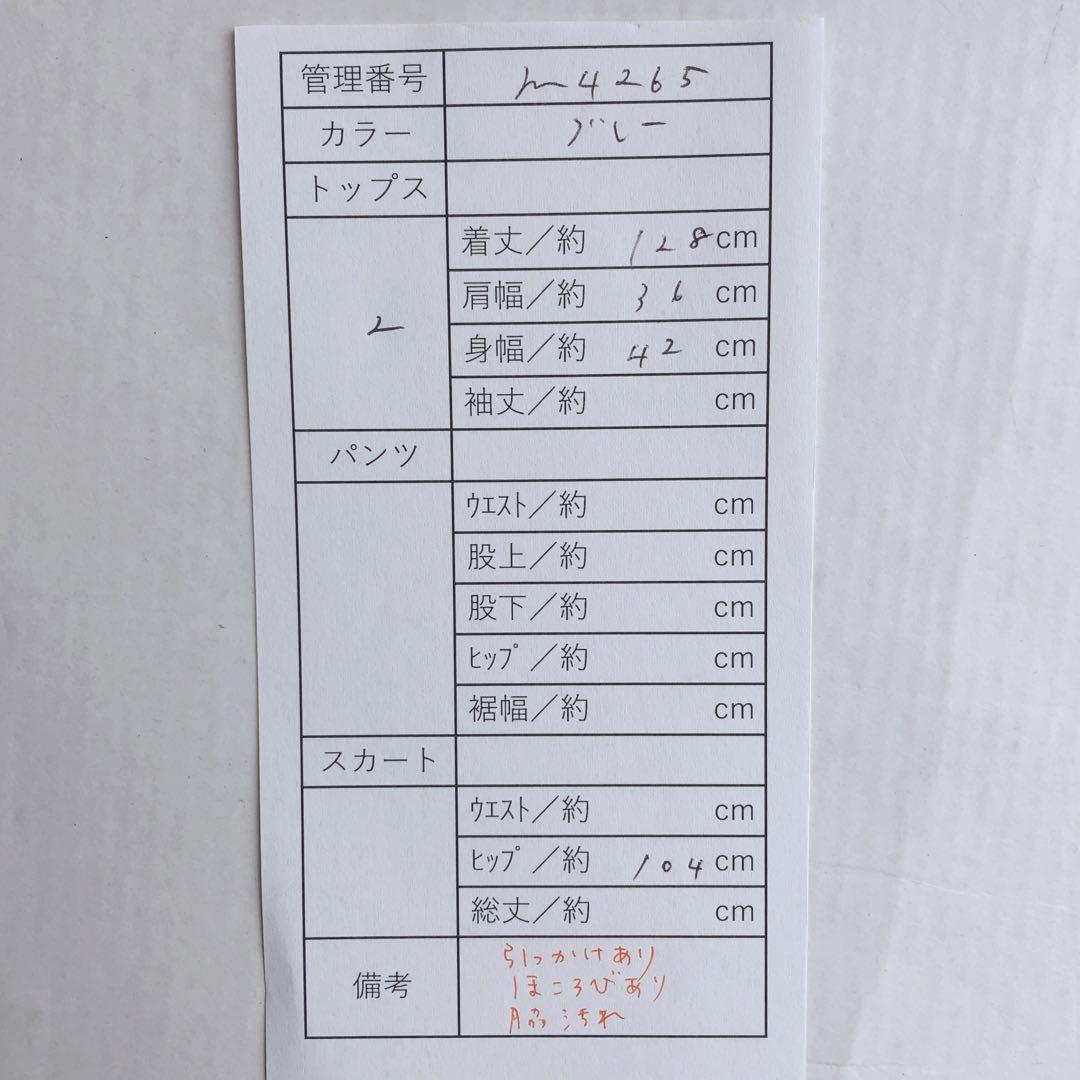 管理番号 m4265
カラー グレー
トップス
2
着丈／約 128 cm
肩幅／約 36 cm
身幅／約 42 cm
袖丈／約 cm
パンツ
ｳｴｽﾄ／約 cm
股上／約 cm
股下／約 cm
ﾋｯﾌﾟ／約 cm
裾幅／約 cm
スカート
ｳｴｽﾄ／約 cm
ﾋｯﾌﾟ／約 104 cm
総丈／約 cm
備考
引っかけあり
ほころびあり
脇汚れ